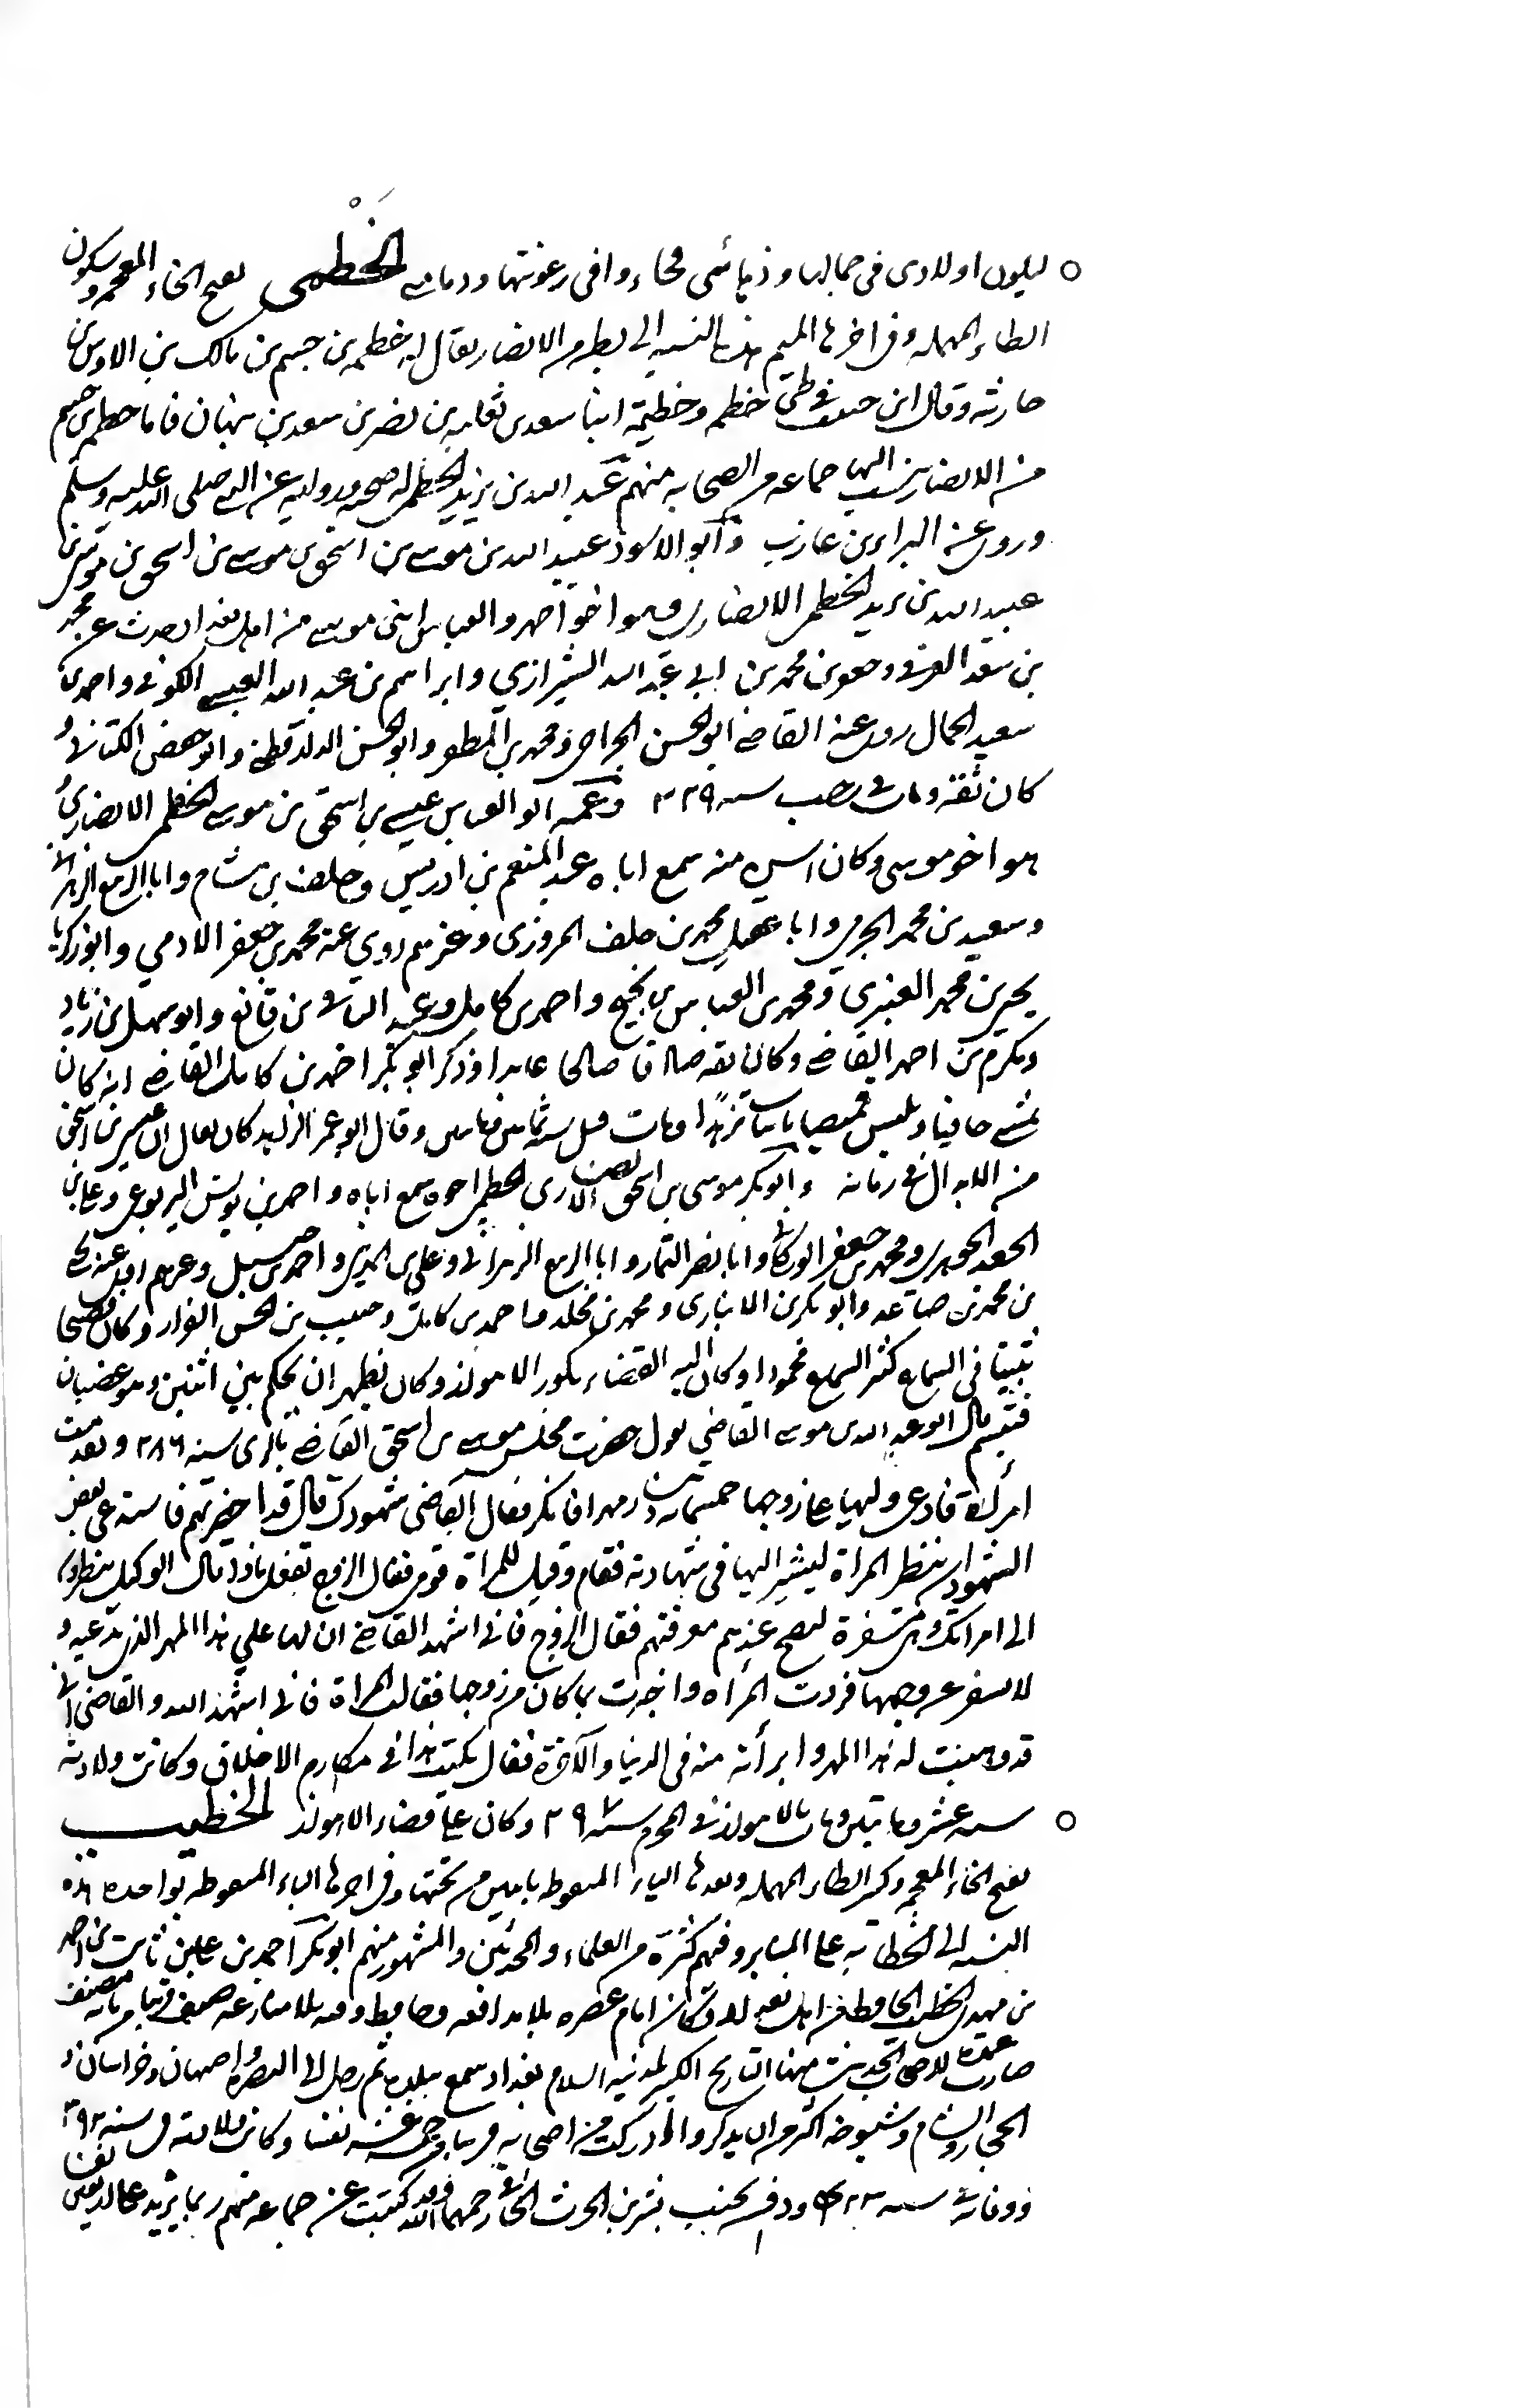 ليكون اولادي في جمالها و ذكائي فجاء وا في رعونتها ودمامتي الخَطْمي بفتح الخاء المعجمه وسكون
الطاء المهمله وفي اخرها الميم هذه النسبه الى بطن من الانصار يقال له خطمه بن جشم بن مالك بن الاوس بن
حارثه وقال ابن حبيب في طي خطمه وخطيمة ابنا سعد بن ثعلبه بن نضر بن سعد بن نبهان فاما خطمه بن جشم
من الانصار ينسب اليها جماعه من الصحابه منهم عبد الله بن يزيد الخطمي له صحبه وروايه عن النبي صلى الله عليه وسلم
وروى عنه البراء بن عازب وابو الاسود عبيد الله بن موسى بن اسحق بن موسى بن اسحق بن موسى بن
عبد الله بن يزيد الخطمي الانصاري وهو اخو احمد والعباس ابني موسى من اهل بغداد حدث عن محمد
بن سعد العوفي وجعفر بن محمد بن ابي عبد الله الشيرازي وابراهيم بن عبد الله العبسي الكوفي واحمد بن
سعيد الجمال روى عنه القاضي ابو الحسن الجراحي ومحمد بن المظفر وابو الحسن الدارقطني وابو حفص الكتاني و
كان ثقة ومات في رجب سنه ٣٢٩ وعمه ابو العباس عيسى بن اسحق بن موسى الخطمي الانصاري و
هو اخو موسى وكان اسن منه سمع اباه عبد المنعم بن ادريس وخلف بن هشام وابا الربيع الزهراني
وسعيد بن محمد الجرمي وابا محمد بن خلف المروزي وغيرهم روي عنه محمد بن جعفر الادمي وابو زكريا
يحيى بن محمد العنبري ومحمد بن العباس بن نجيح واحمد بن كامل وعبد الباقي بن قانع وابو سهل بن زياد
ومكرم بن احمد القاضي وكان ثقه صادقا صالحا عابدا وذكر ابو بكر احمد بن كامل القاضي انه كان
يمشي حافيا ويلبس قميصا تزهدا ومات قبل سنه ثمانين ومايتين وقال ابو عمر الزاهد كان يقال ان عيسى بن اسحق
من الابدال في زمانه وابو بكر موسى بن اسحق الانصاري الخطمي اخوه سمع اباه واحمد بن يونس اليربوعي وعلي بن
الجعد الجوهري ومحمد بن جعفر الوركاني وابا نصر التمار وابا الربيع الزهراني وعلي بن المديني واحمد بن حنبل وغيرهم روى عنه يحيى
بن محمد بن صاعد وابو بكر بن الانباري ومحمد بن مخلد واحمد بن كامل وحبيب بن الحسن القزاز وكان فصيحا
ثبتا في السماع كثير السماع محمودا وكان اليه القضاء بكور الاهواز وكان يظهر ان يحكم بين اثنين وهو غضبان
فتبسم قال ابو عبد الله بن موسى القاضي يقول حضرت مجلس موسى بن اسحق القاضي بالري سنه ٢٨٦ وتقدمت
امراة فادعى وليها على زوجها خمسمائه دينار مهرا فانكر فقال القاضي شهودك قال قد احضرتهم فاستدعى بعض
الشهود ان ينظر المراة ليشير اليها في شهادته فقام وقيل للمراة قومي فقال الزوج تفعل ماذا قال الوكيل ينظرون
الى امراتك وهي سفرة ليصح عندهم معرفتهم فقال الزوج فاني اشهد القاضي ان لها علي هذا المهر الذي تدعيه و
لا تسفر عن وجهها فردت المراه واخبرت بما كان من زوجها فقالت المراة فاني اشهد الله والقاضي اني
قد وهبت له هذا المهر وابرأته منه في الدنيا والآخرة فقال يكتب هذا في مكارم الاخلاق وكانت ولادته
سنه عشر ومايتين ومات بالاهواز في المحرم سنه ٢٩٧ وكان على قضاء الاهواز الخطيب
بفتح الخاء المعجمه وكسر الطاء المهمله وبعدها الياء المنقوطه باثنتين من تحتها وفي اخرها الباء المنقوطه بواحده هذه
النسبه الى الخطابه على المنابر وفيهم كثرة من العلماء والمحدثين والمشهور منهم ابو بكر احمد بن علي بن ثابت بن احمد
بن مهدي الخطيب الحافظ من اهل بغداد كان امام عصره بلا مدافعه وحافظ وقته بلا منازعه صنف قريبا من مايه مصنف
صارت عمدة لاصحاب الحديث منها التاريخ الكبير لمدينه السلام بغداد سمع ببلده ثم رحل الى البصره واصبهان وخراسان و
الحجاز والشام وشيوخه اكثر من ان يذكروا ادركت من اصحابه قريبا من خمسة عشر نفسا وكانت ولادته في سنه ٣٩٢
ووفاته في سنه ٤٦٣ ودفن بجنب بشر بن الحرث الحافي رحمهما الله وقد كتبت عن جماعه منهم ربما يزيد على الاربعين